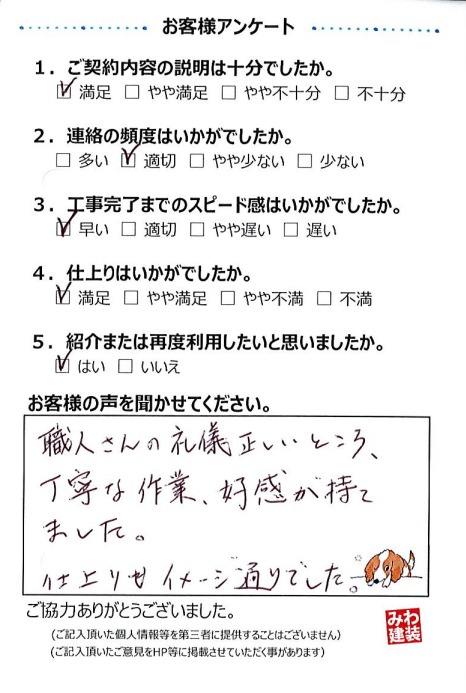 お客様アンケート
1．ご契約内容の説明は十分でしたか。
☑ 満足 □ やや満足 □ やや不十分 □ 不十分
2．連絡の頻度はいかがでしたか。
□ 多い ☑ 適切 □ やや少ない □ 少ない
3．工事完了までのスピード感はいかがでしたか。
☑ 早い □ 適切 □ やや遅い □ 遅い
4．仕上りはいかがでしたか。
☑ 満足 □ やや満足 □ やや不満 □ 不満
5．紹介または再度利用したいと思いましたか。
☑ はい □ いいえ
お客様の声を聞かせてください。
職人さんの礼儀正しいところ、
丁寧な作業、好感が持て
ました。
仕上りもイメージ通りでした。
ご協力ありがとうございました。
(ご記入頂いた個人情報等を第三者に提供することはございません)
(ご記入頂いたご意見をHP等に掲載させていただく事があります)
みわ
建装